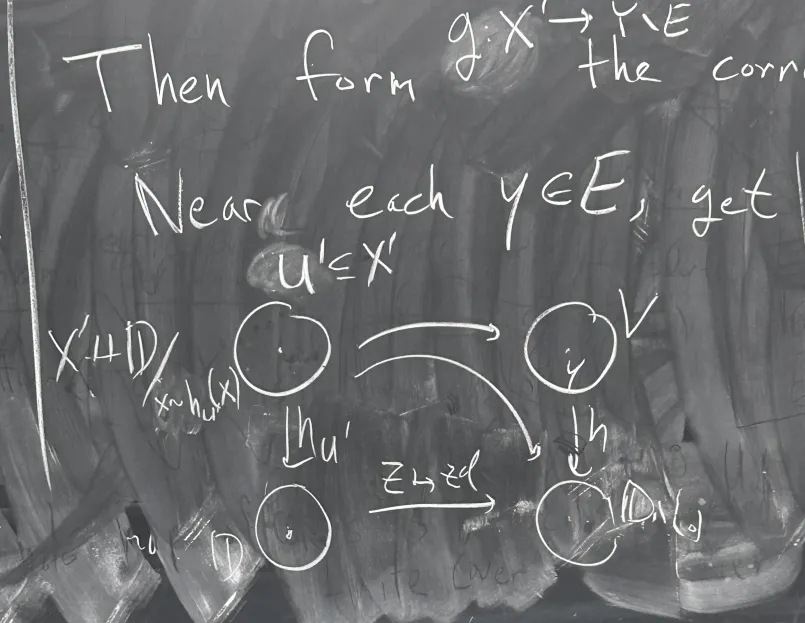 Then form g: X' → Y \ E the
Near each y ∈ E, get
U' ⊆ X'
X' ⊔ 𝔻 / x ~ h_{U'}(x)
y V
h_{U'} h
z ↦ z^d
𝔻 𝔻 \